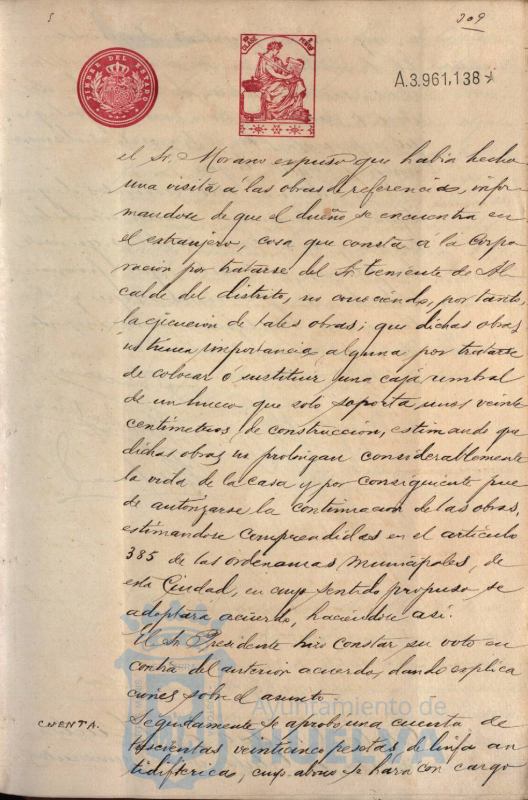 309
TIMBRE DEL ESTADO
A.3.961,138
el Sr. Morano expuso que había hecho
una visita á las obras de referencia, infor
mandose de que el dueño se encuentra en
el estranjero, cosa que consta á la Corpo
racion por tratarse del Sr. Teniente de Al
calde del distrito, no conociendo, por tanto,
la ejecucion de tales obras; que dichas obras
no tienen importancia alguna por tratarse
de colocar ó sustituir una caja umbral
de un hueco que solo soporta unos veinte
centimetros de construcción, estimando que
dichas obras no prolongan considerablemente
la vida de la casa y por consiguiente pue
de autorizarse la continuacion de las obras,
estimandose comprendidas en el artículo
385 de las ordenanzas municipales, de
esta Ciudad, en cuyo sentido propuso se
adoptara acuerdo, haciendose así.
El Sr. Presidente hizo constar su voto en
contra del anterior acuerdo, dando esplica
ciones sobre el asunto.
CUENTA.
Seguidamente se aprobó una cuenta de
trescientas veinticinco pesetas, de linfa an
tidiftericas, cuyo abono se hará con cargo
Ayuntamiento de
HUELVA